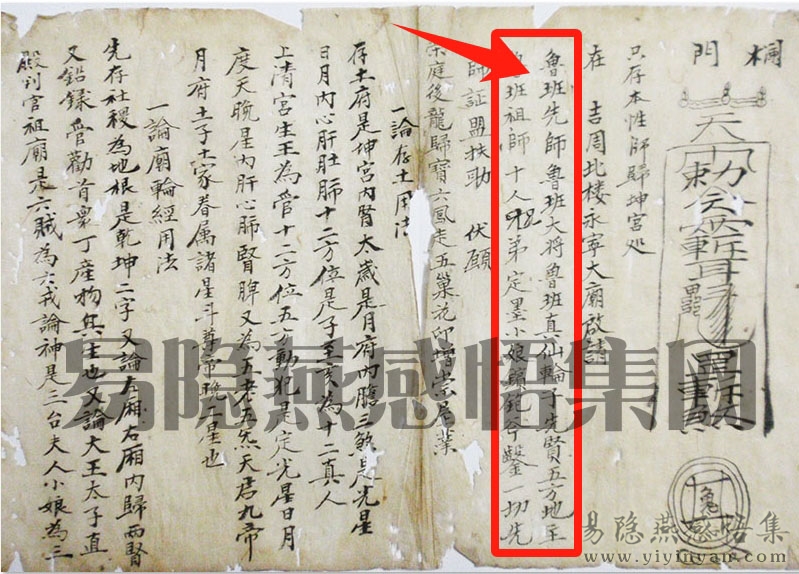 欄門
天
勅令
只存本性師歸坤宮処
在 吉周北楼永寧大廟啟請
魯班先師魯班大将魯班真仙輪子先賢五方地主
班祖師十人兄弟定墨小娘 斧鑿一切先
師証盟扶助 伏願
庭後龍歸寶六鳳走五巢花印增崇尾業
一論存土用法
存土府是坤宮內腎太歲是月府內膽三煞是光星
日月內心肝肚肺十二方位是子至亥為十二真人
上清宮生王為管十二方位五方動犯是定光星日月
度天晚星內肝心肺腎脾又為五老五炁天君九帝
月府土子土家眷属諸星斗尊帝晚二星也
一論廟輪經用法
先存社稷為地根是乾坤二字又論左廂右廂內歸兩腎
又鉛錄管勸首衆丁產物其主也又論大王太子直
殿判官祖廟是六賊為六戒論神是三台夫人小娘為三
易隐燕感悟集网
易隐燕感悟集
www.yiyinyan.com